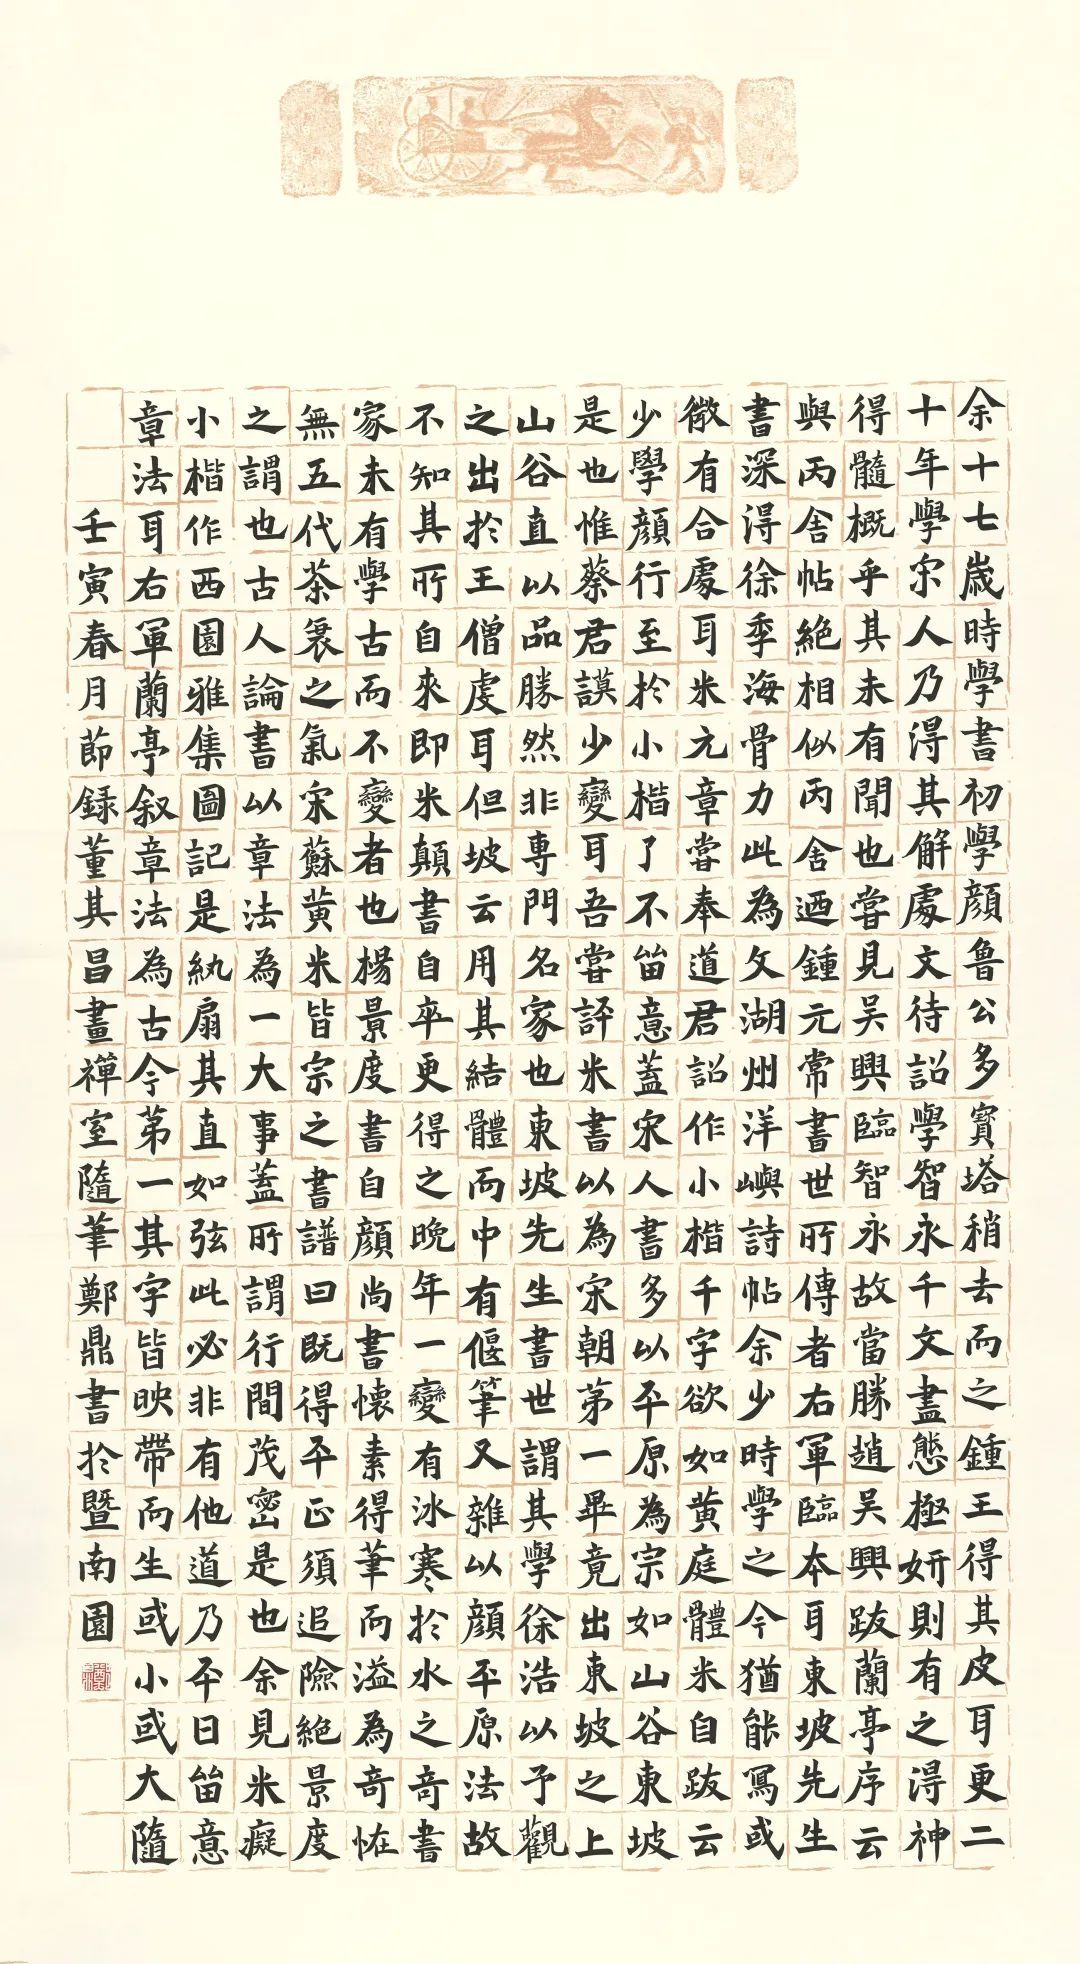 余十七歲時學書初學顏魯公多寶塔稍去而之鍾王得其皮耳更二
十年學宋人乃得其解處文待詔學智永千文盡態極妍則有之得神
得髓概乎其未有聞也嘗見吳興臨智永故當勝趙吳興跋蘭亭序云
與丙舍帖絕相似丙舍迺鍾元常書世所傳者右軍臨本耳東坡先生
書深得徐季海骨力此為文湖州洋嶼詩帖余少時學之今猶能寫或
微有合處耳米元章嘗奉道君詔作小楷千字欲如黃庭體米自跋云
少學顏行至於小楷了不留意蓋宋人書多以平原為宗如山谷東坡
是也惟蔡君謨少變耳吾嘗評米書以為宋朝第一畢竟出東坡之上
山谷直以品勝然非專門名家也東坡先生書世謂其學徐浩以予觀
之出於王僧虔耳但坡云用其結體而中有偃筆又雜以顏平原法故
不知其所自來即米顛書自卒更得之晚年一變有冰寒於水之奇書
家未有學古而不變者也楊景度書自顏尚書懷素得筆而溢為奇恠
無五代茶衰之氣宋蘇黃米皆宗之書譜曰既得平正須追險絕景度
之謂也古人論書以章法為一大事蓋所謂行間茂密是也余見米癡
小楷作西園雅集圖記是紈扇其直如弦此必非有他道乃平日留意
章法耳右軍蘭亭叙章法為古今第一其字皆映帶而生或小或大隨
壬寅春月節錄董其昌畫禪室隨筆鄭鼎書於暨南園